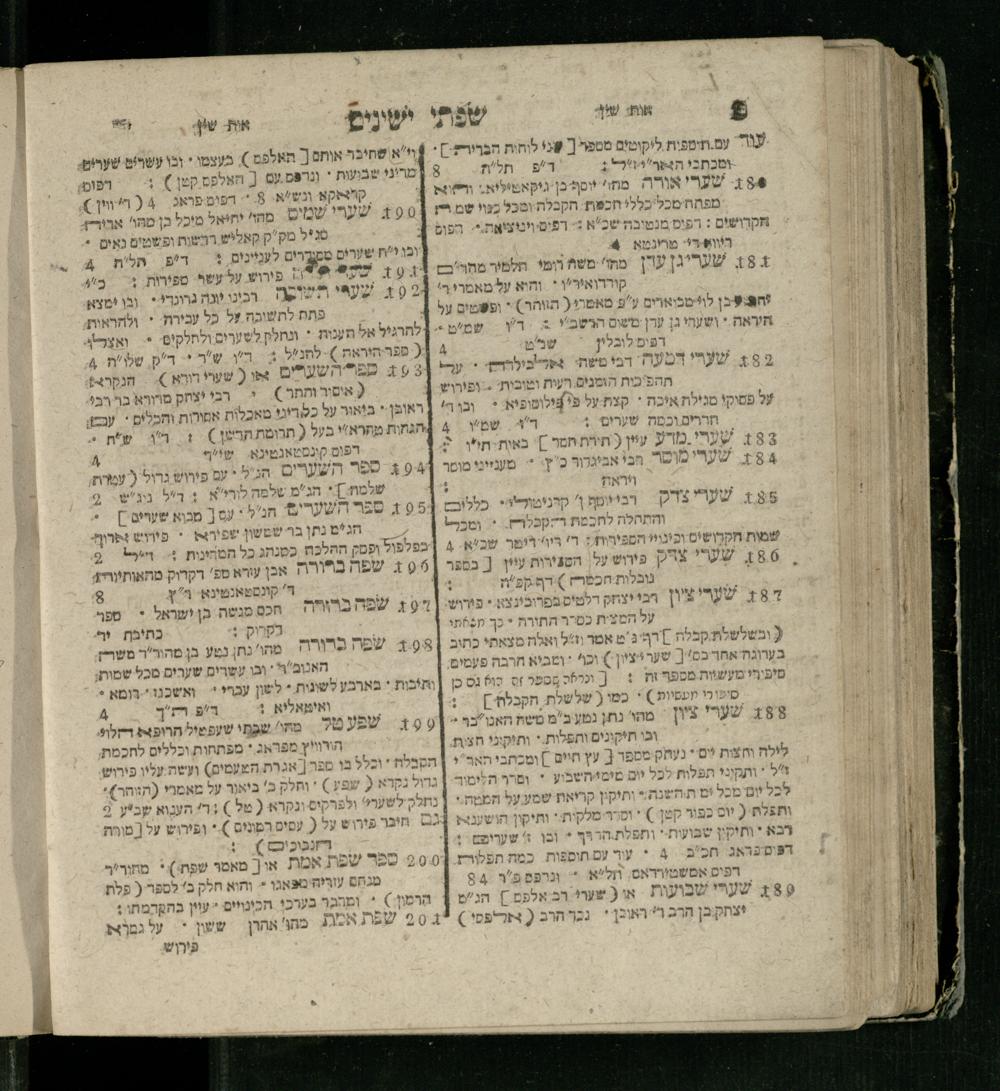 אות שין שפתי ישינים אות שין
עוד עם תוספות ליקוטים מספר [שני לוחות הברית] ·
ומכתבי האר״י ז״ל : ד״פ תל״ה 8
180 שערי אורה מהו׳ יוסף בן גיקאטיליא · והוא
מפתח מכל כללי חכמת הקבלה ומכל כנוי שמות
הקדושים : דפוס מנטובה שכ״א : דפוס ויניציאה · דפוס
ריווא די טרינטא 4
181 שערי גן עדן מהו׳ משה רומי תלמיד מהר״ם
קורדואירו · והוא על מאמרי ר׳
בן לוי מבוארים ע״פ מאמרי (הזוהר) · ופשטים על
היראה · ושערי גן עדן משום הרשב״י : ד״ו שמ״ט ·
דפוס לובלין שנ״ט 4
182 שערי דמעה רבי משה על
תהפיכות הזמנים רעות וטובות · ופירוש
על פסוקי מגילת איכה · קצת על פי פילוסופיא · ובו ד׳
חדרים וכמה שערים : ד״ו שמ״ו 4
183 שערי מדע עיין (תורת חסד] באות תי״ו :
184 שערי מוסר רבי אביגדור כ״ץ · מענייני מוסר
ויראה :
185 שערי צדק רבי יוסף ן׳ קרניטול · כללים
והתחלה לחכמת הקבלה · ומכל
שמות הקדושים וכינויי הספירות : ד׳ ריו׳ דיטר שכ״א 4
186 שערי צדק פירוש על הספירות עיין [בספר
נובלות חכמה) דף קפ״ה :
187 שערי ציון רבי יצחק דלטים בפרובינצא · פירוש
על המצות כסדר התורה · כך מצאתי
(ובשלשלת קבלה] דף אמר וז״ל ואלה מצאתי כתוב
בערוגה אחד בס׳ [שערי ציון) וכו׳ · ומביא הרבה פעמים
סיפורי מעשיות מספר זה : [ונראה שספר זה הוא גם כן
סיפורי מעשיות) · כמו (שלשלת הקבלה] :
188 שערי ציון מהו׳ נתן נטע ב״מ משה האנובר ·
ובו תיקונים ותפלות · ותיקוני חצות
לילה וחצות יום · נעתק מספר [עץ חיים] ומכתבי האר״י
ז״ל · ותקוני תפלות לכל יום מימי השבוע · וסדר הלימוד
לכל יום מכל ימות השנה · ותיקון קריאת שמע על המטה ·
ותפלת (יום כפור קטן) · וסדר מלקות · ותיקון הושענא
רבא · ותיקון שבועות · ותפלת הדרך · ובו ז׳ שערים :
דפוס פראג תכ״ב 4 · עוד עם תוספות כמה תפלות
דפוס אמשטירדאם תל״א · ונדפס פ״ר 84
189 שערי שבועות או (שערי רב אלפס] הג״מ
יצחק בן הרב ר׳ ראובן · נכד הרב (אלפסי)
וי״א שחיבר אותם [האלפס) בעצמו · ובו עשרים שערים
מדיני שבועות · ונדפס עם [האלפס קטן) : דפוס
קראקא ונש״א 8 · דפוס פראג 4 (ד׳ ווין)
190 שערי שמים מהו׳ יחיאל מיכל בן מהו׳
סג״ל מק״ק קאליש דרשות ופשטים נאים ·
ובו י״ח שערים מסודרים לעניינים : ד״פ תל״ה 4
191 שערי פירוש על עשר ספירות : כ״י
192 שערי תשובה רבינו יונה גרונדי · ובו ימצא
פתח לתשובה על כל עבירה · ולהראות
להרגיל אל הענוה · ונחלק לשערים ולחלקים · ואצלו
(ספר היראה) להנ״ל : ד״ו ש״ד · ד״ק שלו״ה 4
193 ספר השערים או (שערי דורא) הנקרא
(איסור והתר) · רבי יצחק מדורא בר רבי
ראובן · ביאור על כל דיני מאכלות אסורות והכלים · עם
הגהות מהרא״י בעל (תרומת הדשן) : ד״ו ש״ח ·
דפוס קונסטאנטינא שי״ד 4
194 ספר השערים הנ״ל · עם פירוש גדול (עטרת
שלמה] · הג״מ שלמה לוריא : ד״ל ג״ש 2
195 ספר השערים הנ״ל · עם [מבוא שערים] ·
הג״מ נתן בר שמשון שפירא · פירוש ארוך
בפלפול ופסק ההלכה כמנהג כל המדינות : ד״ל 2
196 שפה ברורה אבן עזרא ספ׳ דקדוק מהאותיות
ד׳ קונסטאנטינא ר״ץ 8
197 שפה ברורה חכם מנשה בן ישראל · ספר
דקדוק : כתיבת יד
198 שפה ברורה מהו׳ נתן נטע בן מהור״ר משה
האנובר · ובו עשרים שערים מכל שמות
ותיבות · בארבע לשונות · לשון עברי · ואשכנז · רומא ·
ואיטאליא : ד״פ ת״ך 4
199 שפע טל מהו׳ שבתי שעפטיל הרופא הלוי
הורוויץ מפראג · מפתחות וכללים לחכמת
הקבלה · וכלל בו ספר [אגרת הטעמים) ועשה עליו פירוש
גדול נקרא (שפע) · וחלק ב׳ ביאור על מאמרי (הזוהר) ·
נחלק לשערי׳ ולפרקים ונקרא (טל) : ד׳ הענוא שע״ב 2
גם חיבר פירוש על (עסיס רמונים) · ופירוש על [מורה
הנבוכים) :
200 ספר שפת אמת או [מאמר שפת) · מהור״ר
מנחם עזריה מפאנו · והוא חלק ב׳ לספר (פלח
הרמון) · ומדבר בערכי הכינויים · עיין בהקדמתו :
201 שפת אמת מהו׳ אהרן ששון · על גמרא
פירוש